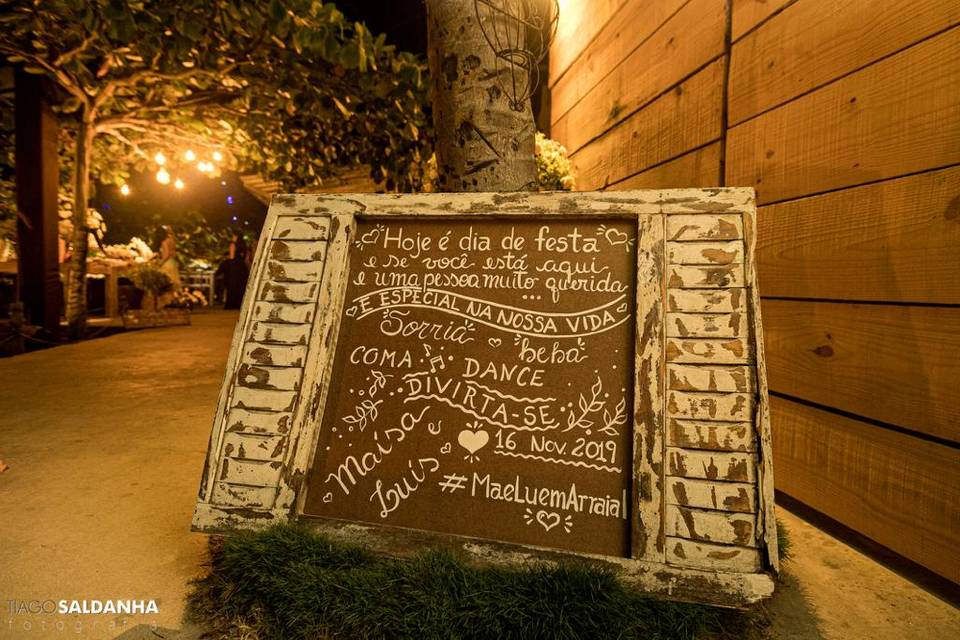 Hoje é dia de festa
e se você está aqui
e uma pessoa muito querida
...
E ESPECIAL NA NOSSA VIDA
Sorria
beba
COMA
DANCE
DIVIRTA-SE
Maisa
e
Luis
16 Nov. 2019
#MaeLuemArraial
TIAGO SALDANHA
fotografia